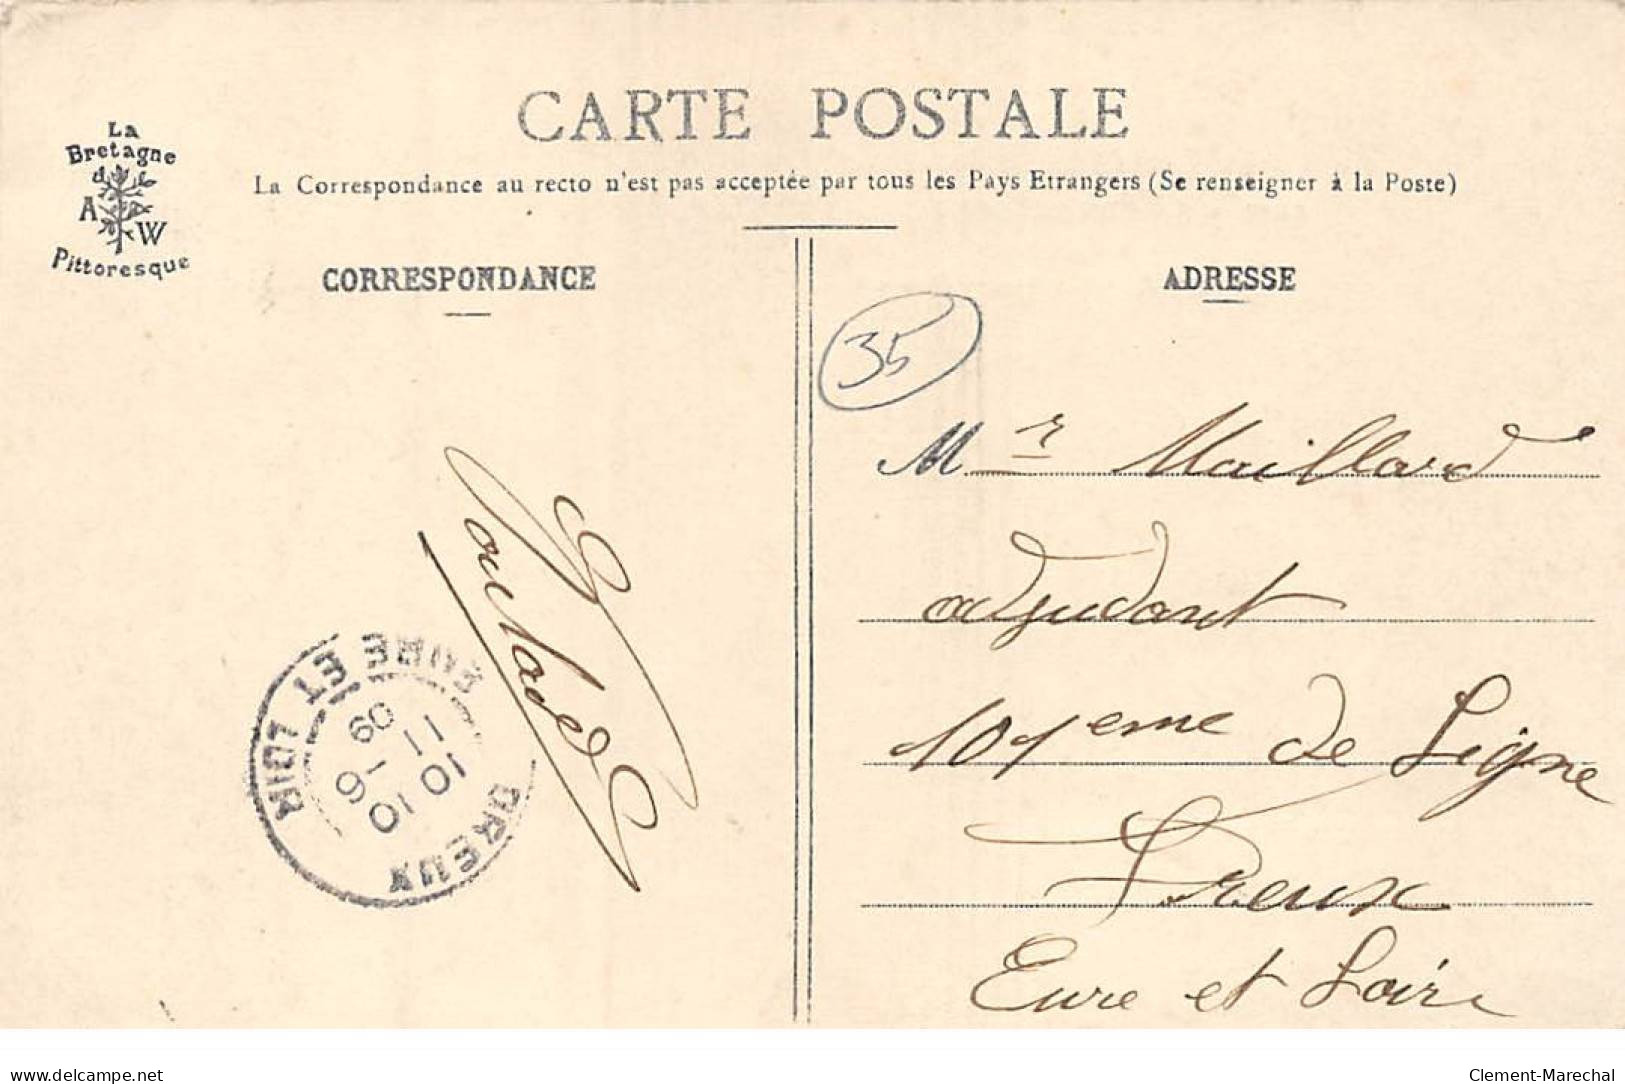 CARTE POSTALE
La
Bretagne
A W
Pittoresque
La Correspondance au recto n'est pas acceptée par tous les Pays Etrangers (Se renseigner à la Poste)
CORRESPONDANCE
ADRESSE
35
Mr Maillard
adjudant
101eme de Ligne
Dreux
Eure et Loir
DREUX
EURE ET LOIR
10 10
11 -6
09
www.delcampe.net
Clement-Marechal